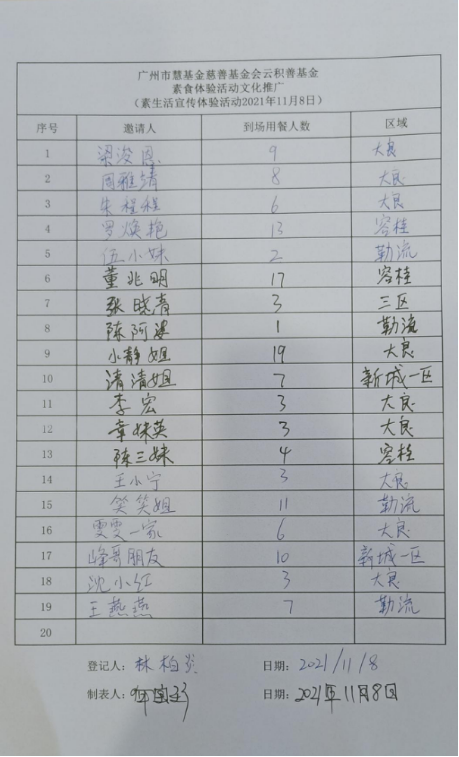 广州市慧基金慈善基金会云积善基金
素食体验活动文化推广
（素生活宣传体验活动2021年11月8日）
序号 邀请人 到场用餐人数 区域
1 梁浚恩 9 大良
2 周雅靖 8 大良
3 朱程程 6 大良
4 罗焕艳 13 容桂
5 伍小妹 2 勒流
6 董兆明 17 容桂
7 张晓青 3 三区
8 陈阿婆 1 勒流
9 小静姐 19 大良
10 清清姐 7 新城一区
11 李宏 3 大良
12 幸妹英 3 大良
13 陈三妹 4 容桂
14 王小宁 3 大良
15 笑笑姐 11 勒流
16 雯雯一家 6 大良
17 峰哥朋友 10 新城一区
18 沈小红 3 大良
19 王燕燕 7 勒流
20
登记人：林柏 日期：2021/11/8
制表人： 日期：2021年11月8日